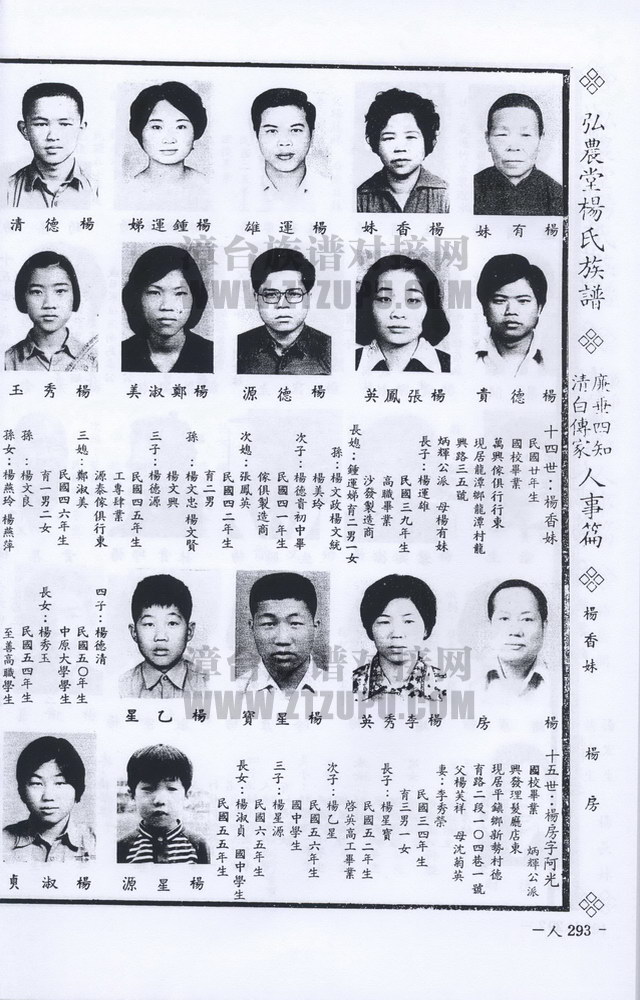 弘農堂楊氏族譜
廉垂四知
清白傳家
人事篇
楊香妹
楊房
一人 293 -
楊有妹
楊香妹
楊運雄
楊鍾運娣
楊德清
漳台族谱对接网
WWW.ZTZUPU.COM
楊德貴
楊張鳳英
楊德源
楊鄭淑美
楊秀玉
十四世：楊香妹
民國廿年生
國校畢業
萬興傢俱行行東
現居龍潭鄉龍潭村龍
興路三五號
炳輝公派　母楊有妹
長子：楊運雄
民國三九年生
高職畢業
沙發製造商
長媳：鍾運娣育二男一女
孫：楊文政楊文統
楊美玲
次子：楊德貴初中畢
民國四一年生
傢俱製造商
次媳：張鳳英
民國四二年生
育二男
孫：楊文忠 楊文賢
楊文興
三子：楊德源
民國四五年生
工專肄業
源泰傢俱行東
三媳：鄭淑美
民國四六年生
育一男二女
孫：楊文良
孫女：楊燕玲 楊燕萍
四子：楊德清
民國五〇年生
中原大學學生
長女：楊秀玉
民國五四年生
至善高職學生
楊房
楊李秀英
楊星寶
楊乙星
漳台族谱对接网
WWW.ZTZUPU.COM
十五世：楊房字阿光
國校畢業　炳輝公派
興發理髮廳店東
現居平鎮鄉新勢村德
育路二段一〇四巷一號
父楊芙祥　母沈菊英
妻：李秀榮
民國三四年生
育三男一女
長子：楊星寶
民國五二年生
啓英高工畢業
次子：楊乙星
民國五六年生
國中學生
三子：楊星源
民國六五年生
長女：楊淑貞 國中學生
民國五五年生
楊星源
楊淑貞